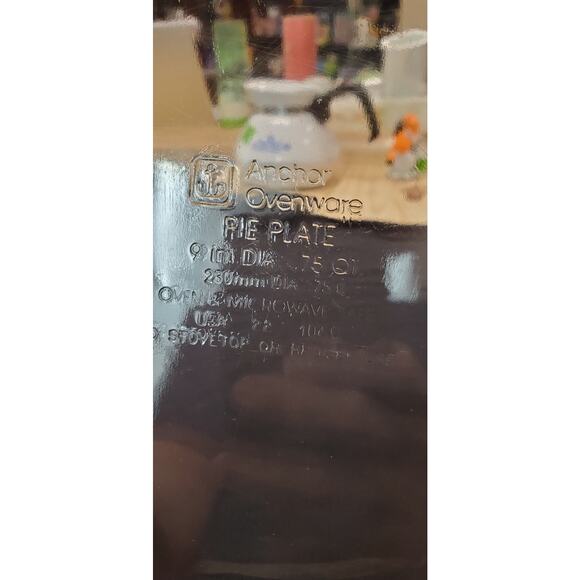 Anchor
Ovenware
PIE PLATE
9 in DIA .75 QT
230mm DIA
OVEN & MICROWAVE
USA
STOVETOP OR